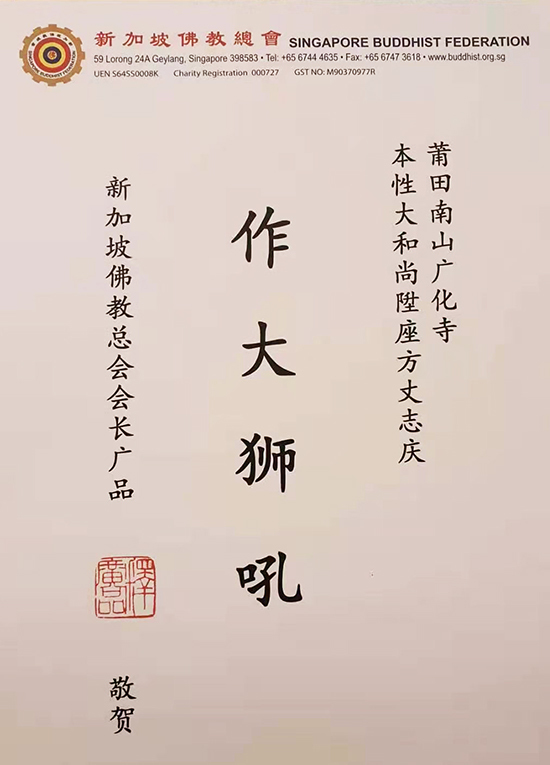 新加坡佛教總會 SINGAPORE BUDDHIST FEDERATION
59 Lorong 24A Geylang, Singapore 398583 • Tel: +65 6744 4635 • Fax: +65 6747 3618 • www.buddhist.org.sg
UEN S64SS0008K Charity Registration 000727 GST NO: M90370977R
莆田南山广化寺
本性大和尚陞座方丈志庆
作大狮吼
新加坡佛教总会会长广品
釋廣品
敬贺